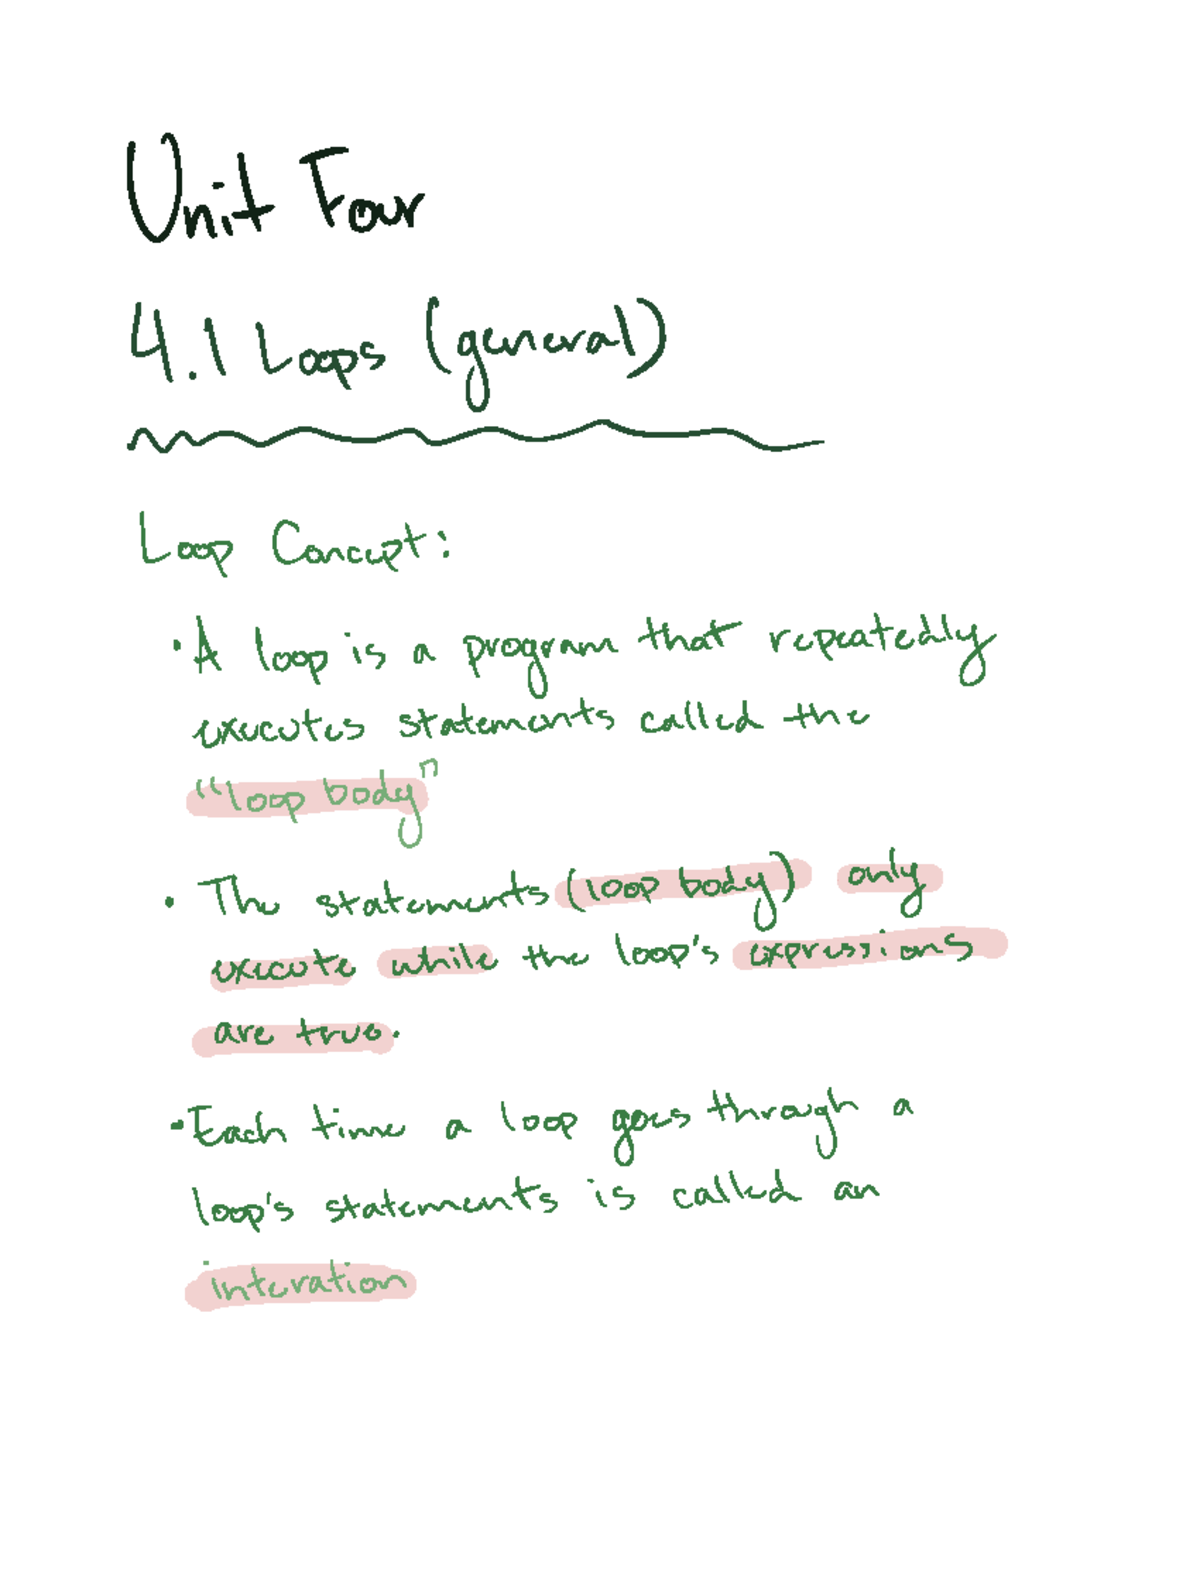 Unit Four
4.1 Loops (general)
Loop Concept:
• A loop is a program that repeatedly
executes statements called the
"loop body"
• The statements (loop body) only
execute while the loop's expressions
are true.
• Each time a loop goes through a
loop's statements is called an
interation